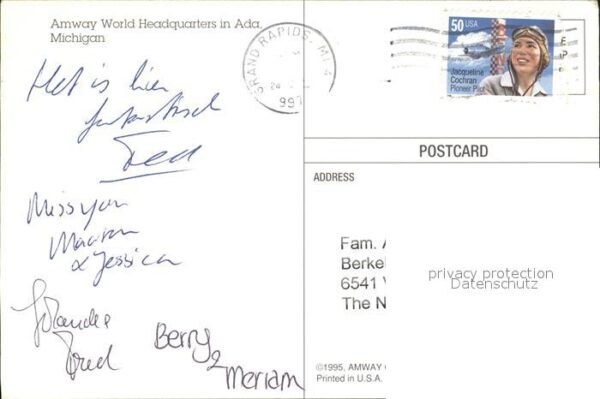 Amway World Headquarters in Ada,
Michigan
Het is hier
fantastisch
Fred
Miss you
& Jessica
Berry
2
Meriam
GRAND RAPIDS, MI
50 USA
Jacqueline
Cochran
Pioneer Pilot
POSTCARD
ADDRESS
Fam.
Berkel
6541
The N
privacy protection
Datenschutz
©1995, AMWAY
Printed in U.S.A.